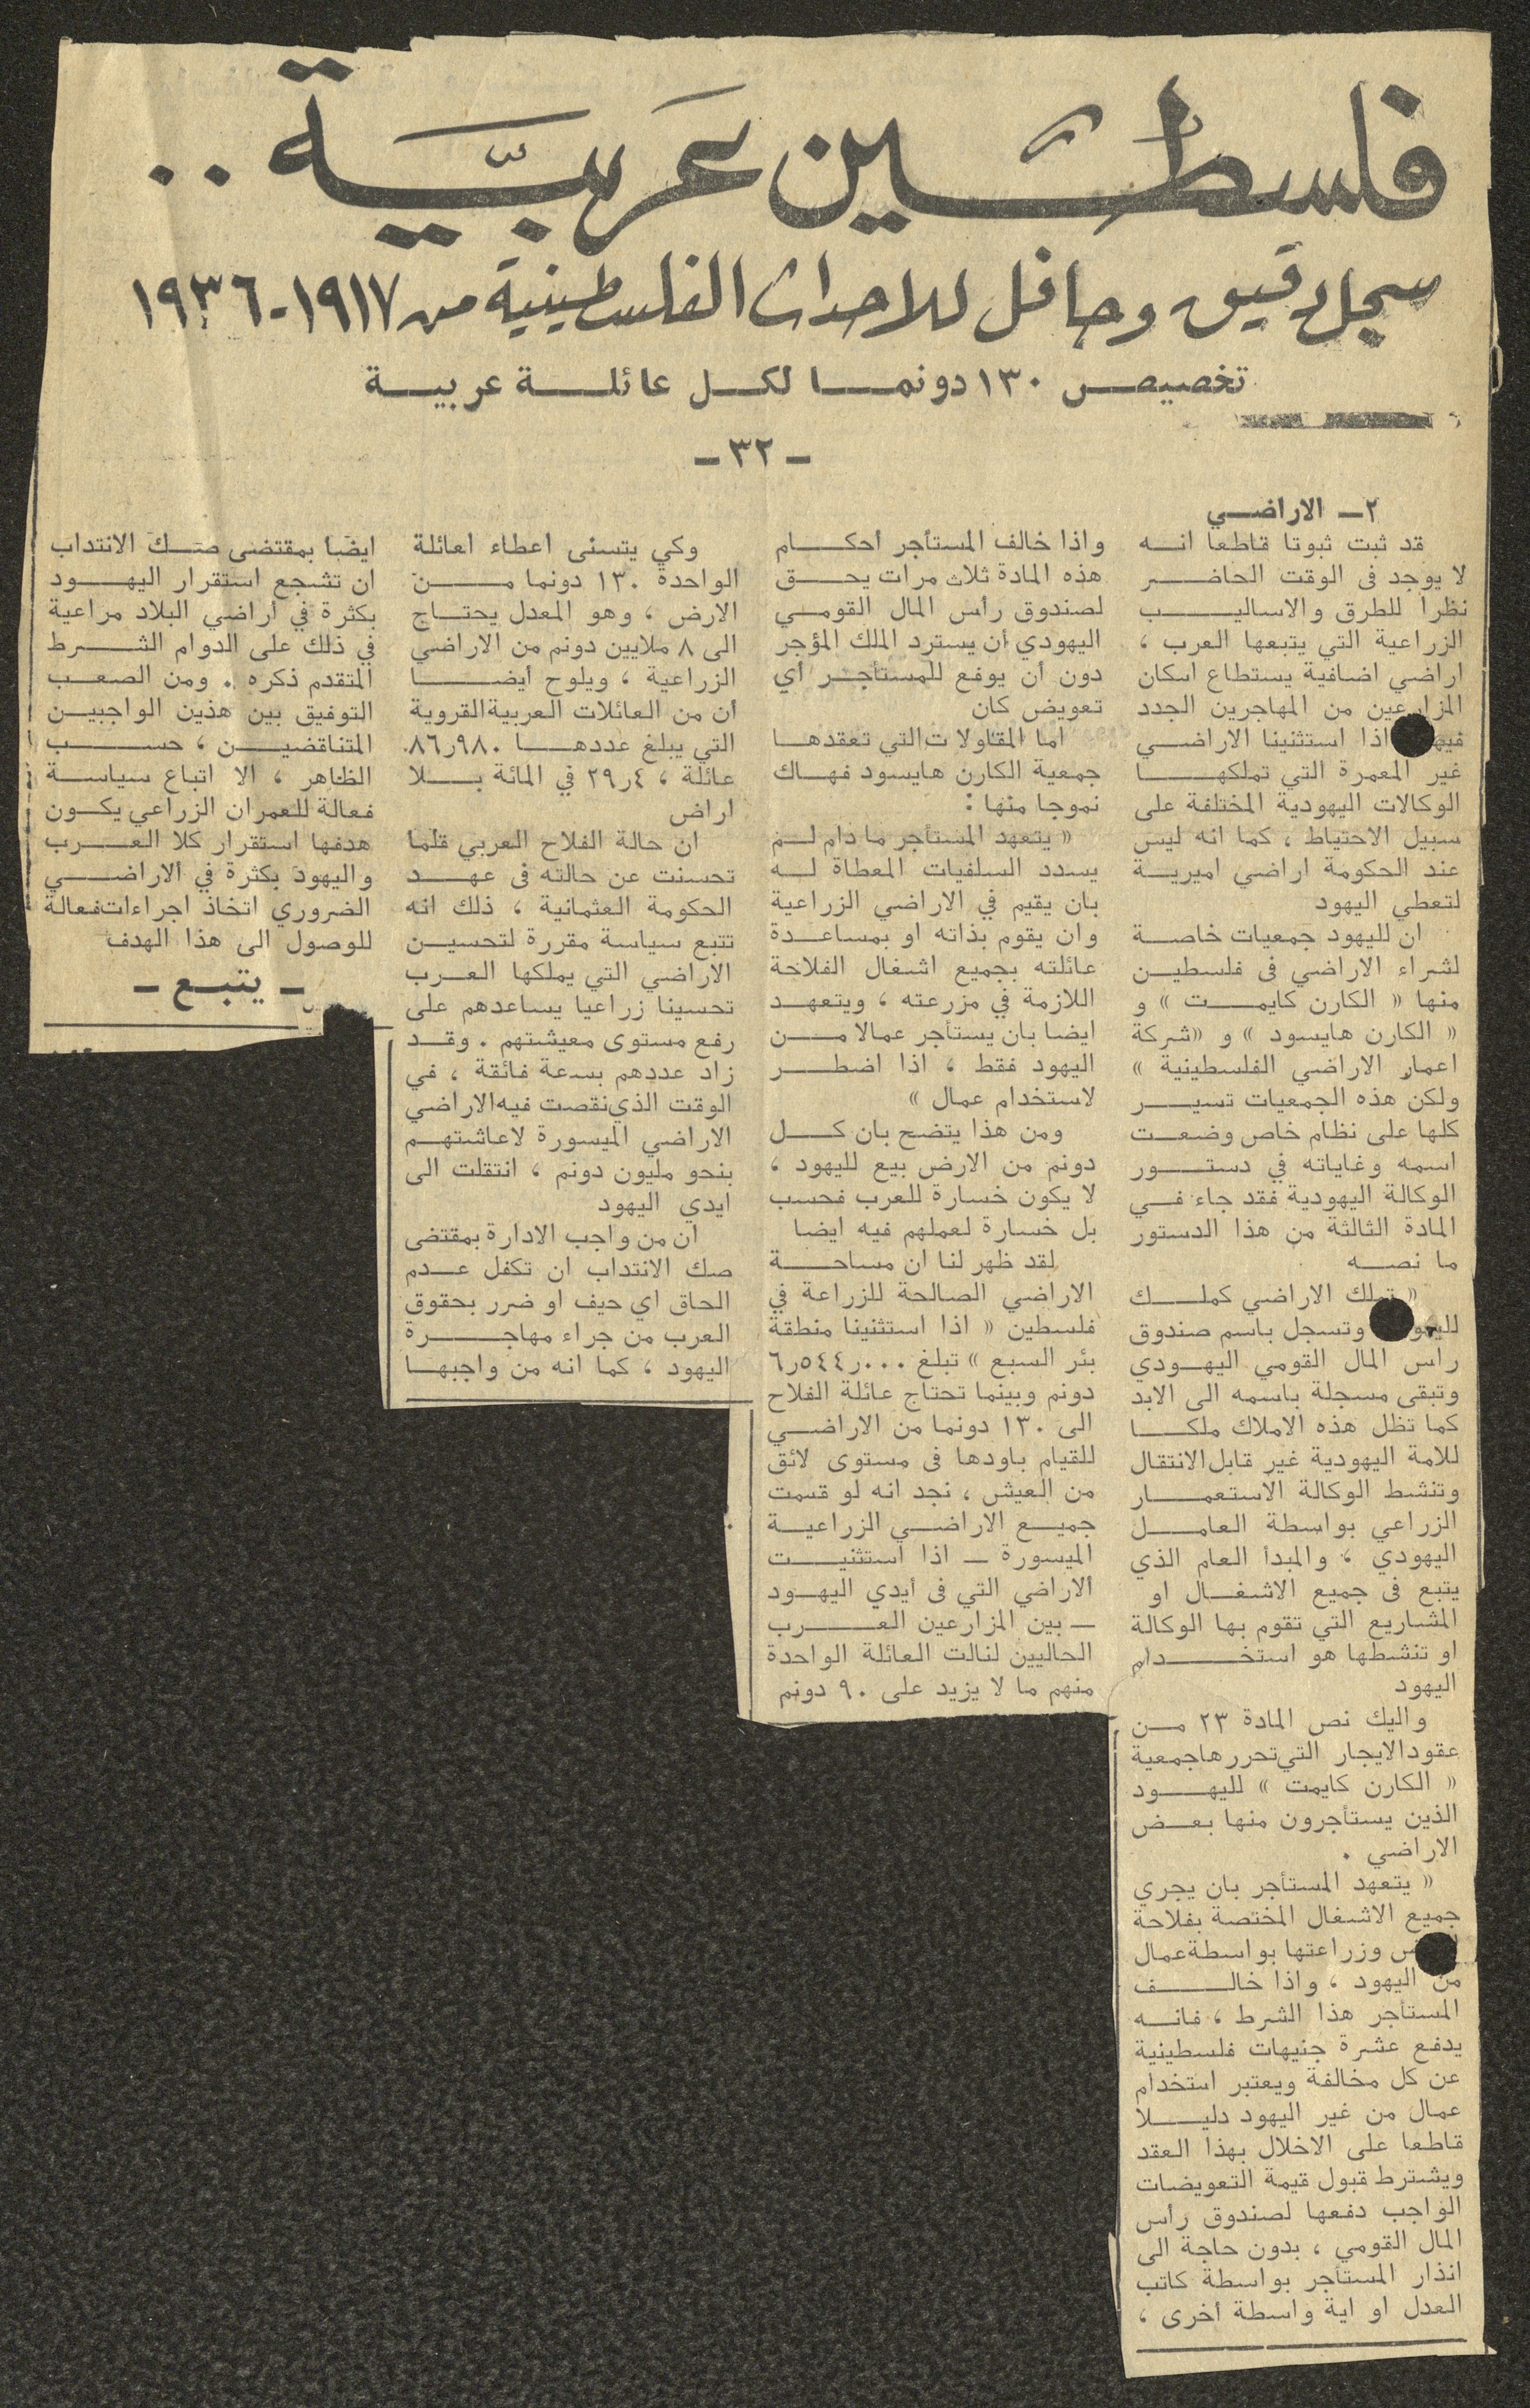 فلسطين عربية ..
سجل دقيق وحافل للاحداث الفلسطينية من ١٩١٧-١٩٣٦
تخصيص ١٣٠ دونما لكل عائلة عربية
- ٣٢ -
٢- الاراضي
قد ثبت ثبوتا قاطعا انه
لا يوجد فى الوقت الحاضر
نظرا للطرق والاساليب
الزراعية التي يتبعها العرب ،
اراضي اضافية يستطاع اسكان
المزارعين من المهاجرين الجدد
اذا استثنينا الاراضي
غير المعمرة التي تملكها
الوكالات اليهودية المختلفة على
سبيل الاحتياط ، كما انه ليس
عند الحكومة اراضي اميرية
لتعطي اليهود
ان لليهود جمعيات خاصة
لشراء الاراضي فى فلسطين
منها « الكارن كايمت » و
« الكارن هايسود » و «شركة
اعمار الاراضي الفلسطينية »
ولكن هذه الجمعيات تسير
كلها على نظام خاص وضعت
اسمه وغاياته في دستور
الوكالة اليهودية فقد جاء في
المادة الثالثة من هذا الدستور
ما نصه
« تملك الاراضي كملك
وتسجل باسم صندوق
راس المال القومي اليهودي
وتبقى مسجلة باسمه الى الابد
كما تظل هذه الاملاك ملكا
للامة اليهودية غير قابل الانتقال
وتنشط الوكالة الاستعمار
الزراعي بواسطة العامل
اليهودي ، والمبدأ العام الذي
يتبع فى جميع الاشغال او
المشاريع التي تقوم بها الوكالة
او تنشطها هو استخدام
اليهود
واليك نص المادة ٢٣ من
عقود الايجار التي تحررها جمعية
« الكارن كايمت » لليهود
الذين يستأجرون منها بعض
الاراضي .
« يتعهد المستأجر بان يجري
جميع الاشغال المختصة بفلاحة
وزراعتها بواسطة عمال
من اليهود ، واذا خالف
المستأجر هذا الشرط ، فانه
يدفع عشرة جنيهات فلسطينية
عن كل مخالفة ويعتبر استخدام
عمال من غير اليهود دليلا
قاطعا على الاخلال بهذا العقد
ويشترط قبول قيمة التعويضات
الواجب دفعها لصندوق رأس
المال القومي ، بدون حاجة الى
انذار المستأجر بواسطة كاتب
العدل او اية واسطة أخرى ،
واذا خالف المستأجر أحكام
هذه المادة ثلاث مرات يحق
لصندوق رأس المال القومي
اليهودي أن يسترد الملك المؤجر
دون أن يوفع للمستأجر أي
تعويض كان
اما المقاولات التي تعقدها
جمعية الكارن هايسود فهاك
نموجا منها :
« يتعهد المستأجر ما دام لم
يسدد السلفيات المعطاة له
بان يقيم في الاراضي الزراعية
وان يقوم بذاته او بمساعدة
عائلته بجميع اشغال الفلاحة
اللازمة في مزرعته ، ويتعهد
ايضا بان يستأجر عمالا من
اليهود فقط ، اذا اضطر
لاستخدام عمال »
ومن هذا يتضح بان كل
دونم من الارض بيع لليهود ،
لا يكون خسارة للعرب فحسب
بل خسارة لعملهم فيه ايضا
لقد ظهر لنا ان مساحة
الاراضي الصالحة للزراعة في
فلسطين « اذا استثنينا منطقة
بئر السبع » تبلغ ٦ر٥٤٤ر٠٠٠
دونم وبينما تحتاج عائلة الفلاح
الى ١٣٠ دونما من الاراضي
للقيام باودها فى مستوى لائق
من العيش ، نجد انه لو قسمت
جميع الاراضي الزراعية
الميسورة — اذا استثنيت
الاراضي التي فى أيدي اليهود
— بين المزارعين العرب
الحاليين لنالت العائلة الواحدة
منهم ما لا يزيد على ٩٠ دونم
وكي يتسنى اعطاء اعائلة
الواحدة ١٣٠ دونما من
الارض ، وهو المعدل يحتاج
الى ٨ ملايين دونم من الاراضي
الزراعية ، ويلوح أيضا
أن من العائلات العربية القروية
التي يبلغ عددها ٨٦ر٩٨٠
عائلة ، ٢٩ر٤ في المائة بلا
اراض
ان حالة الفلاح العربي قلما
تحسنت عن حالته فى عهد
الحكومة العثمانية ، ذلك انه
تتبع سياسة مقررة لتحسين
الاراضي التي يملكها العرب
تحسينا زراعيا يساعدهم على
رفع مستوى معيشتهم . وقد
زاد عددهم بسعة فائقة ، في
الوقت الذي نقصت فيه الاراضي
الاراضي الميسورة لاعاشتهم
بنحو مليون دونم ، انتقلت الى
ايدي اليهود
ان من واجب الادارة بمقتضى
صك الانتداب ان تكفل عدم
الحاق اي حيف او ضرر بحقوق
العرب من جراء مهاجرة
اليهود ، كما انه من واجبها
ايضا بمقتضى صك الانتداب
ان تشجع استقرار اليهود
بكثرة في أراضي البلاد مراعية
في ذلك على الدوام الشرط
المتقدم ذكره . ومن الصعب
التوفيق بين هذين الواجبين
المتناقضين ، حسب
الظاهر ، الا اتباع سياسة
فعالة للعمران الزراعي يكون
هدفها استقرار كلا العرب
واليهود بكثرة في الاراضي
الضروري اتخاذ اجراءات فعالة
للوصول الى هذا الهدف
- يتبع -